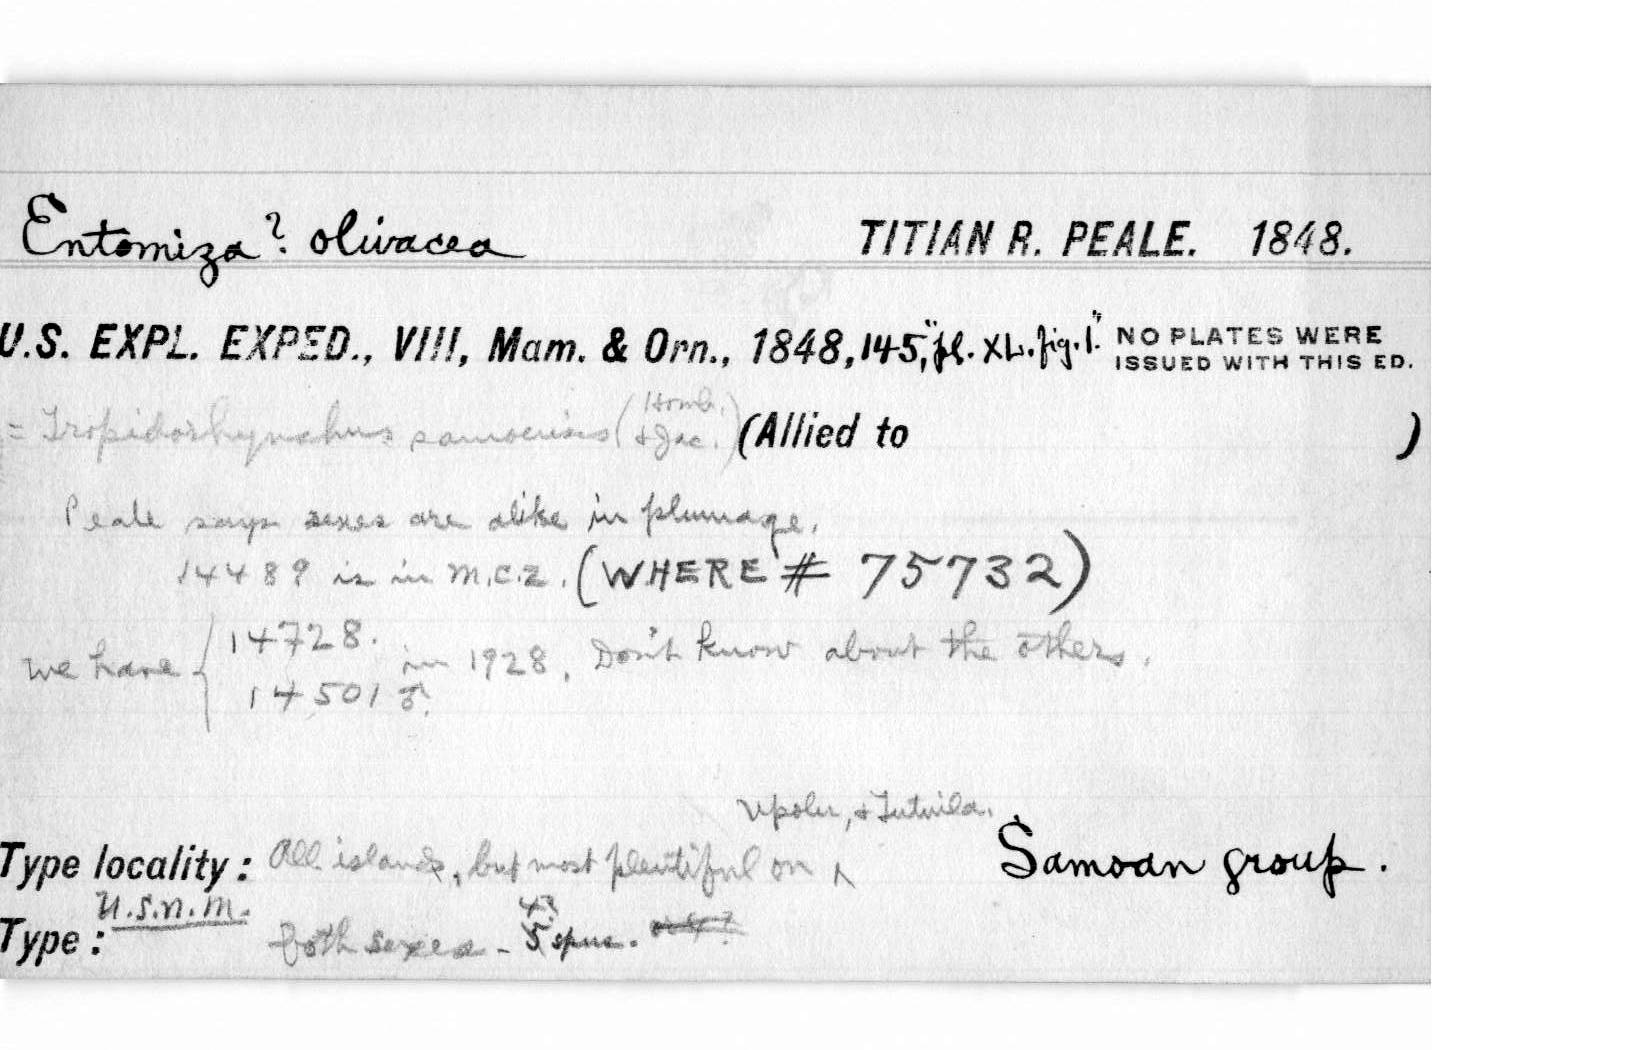 Entomiza? olivacea TITIAN R. PEALE. 1848.
U.S. EXPL. EXPED., VIII, Mam. & Orn., 1848, 145, "pl. XL. fig. 1." NO PLATES WERE
ISSUED WITH THIS ED.
= Tropidorhynchus samoensis (Homb. & Jac.) (Allied to )
Peale says sexes are alike in plumage.
14489 is in M.C.Z. (WHERE # 75732)
We have { 14728. in 1928. Don't know about the others.
14501 ♂.
Upolu, & Tutuila.
Type locality: All islands, but most plentiful on ^ Samoan group.
U.S.N.M.
Type: both sexes - 5 spec.